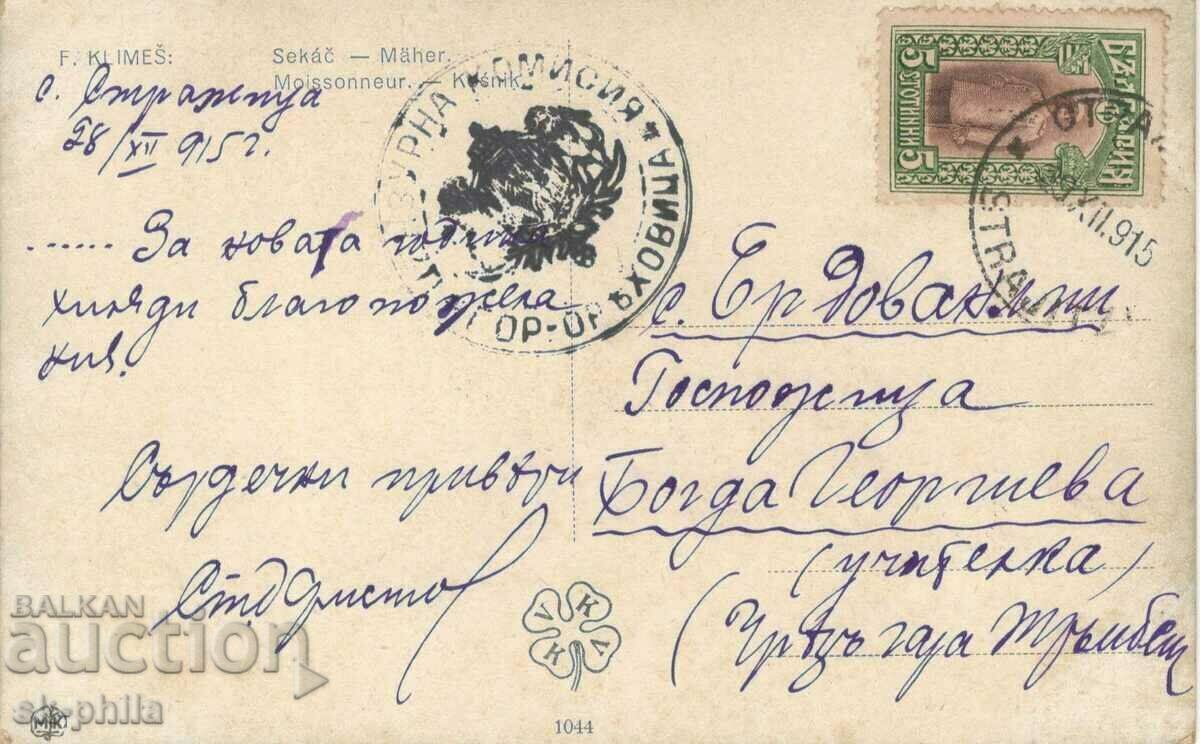 F. KLIMEŠ: Sekáč — Mäher.
Moissonneur. — Kośnik.
с. Стражица
28/XII 915 г.
...... За новата година
хиляди благопожела
ния.
Сърдечни привети
Ст. Д. Христов
ЗУРНА КОМИСИЯ
ГОР-ОРѢХОВИЦА
БЪЛГАРИЯ
5 СТОТИНКИ 5
STRAJITZA
XII.915
с. Ердованлии
Господжица
Богда Георгиева
(учителка)
(Чрезъ гара Трѫмбеш
V K V K
1044
MK
BALKAN
auction
sk-phila